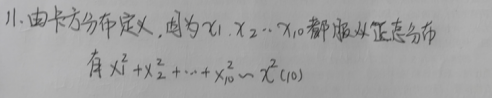 11. 由卡方分布定义,因为x1.x2…x10都服从正态分布
有x1²+x2²+…+x10²~x²(10)